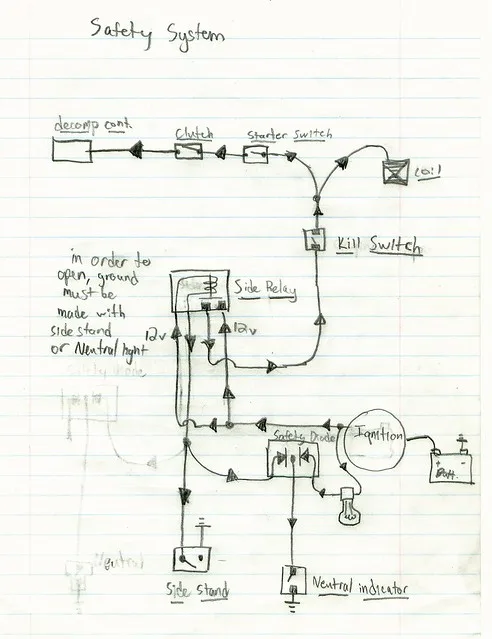 Safety System
decomp cont.
Clutch
Starter Switch
coil
Kill Switch
in order to
open, ground
must be
made with
side stand
or Neutral light
Side Relay
12v
12v
Safety Diode
Ignition
+
-
Batt.
Safety Diode
Neutral
Side Stand
Neutral indicator